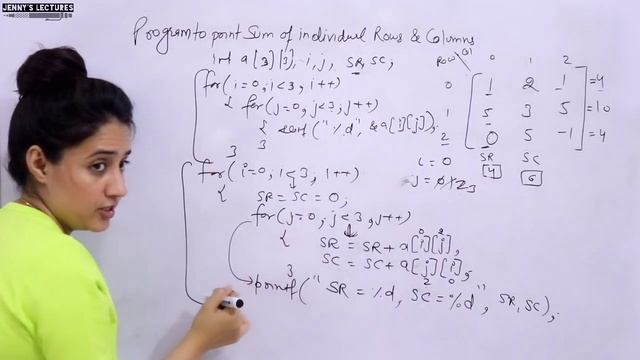 JENNY'S LECTURES
Program to print Sum of individual Rows & Columns
int a[3][3], i, j, SR, SC;
for(i=0, i<3, i++)
{ for(j=0, j<3, j++)
{ scanf("%d", &a[i][j]);
}
}
for(i=0, i<3, i++)
{ SR = SC = 0;
for(j=0, j<3, j++)
{ SR = SR + a[i][j];
SC = SC + a[j][i];
}
printf("SR = %d, SC = %d", SR, SC);
0 1 2
0 1 2 1 = 4
1 5 3 5 = 10
2 0 5 -1 = 4
i = 0 SR SC
j = 0 1 2 3 4 6